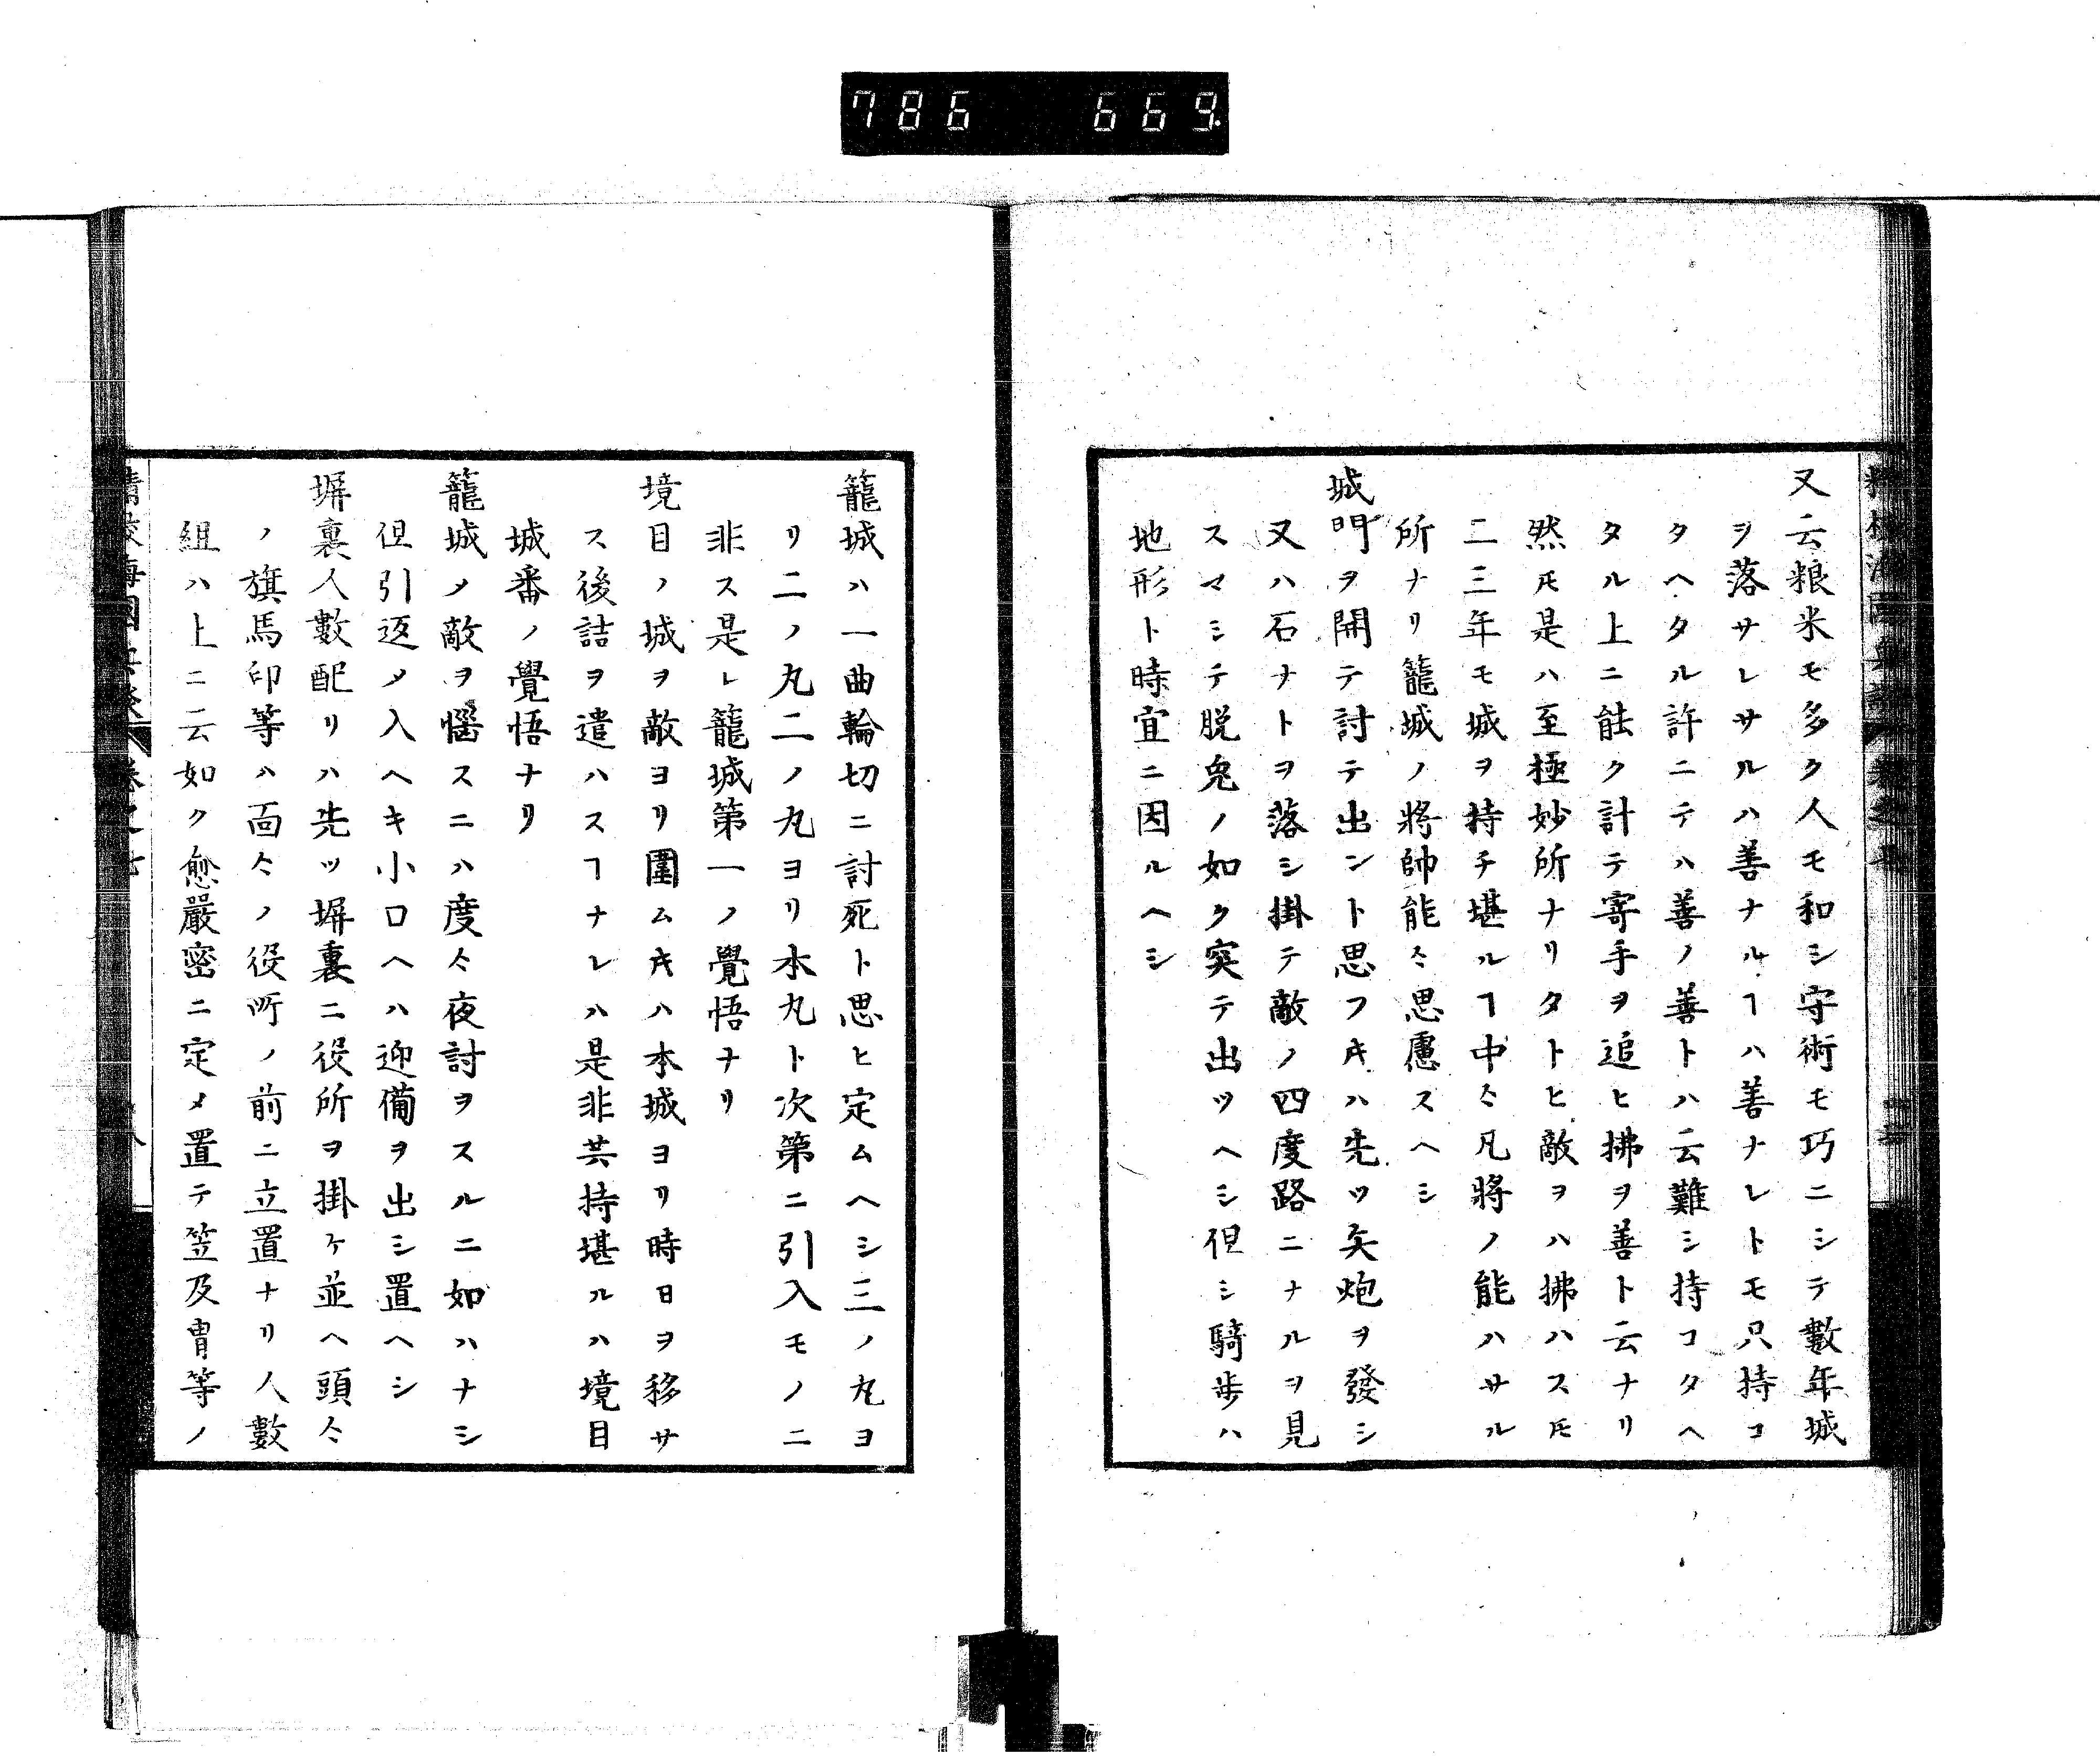 786 669
又云粮米モ多ク人モ和シ守術モ巧ニシテ數年城
ヲ落サレサルハ善ナルヿハ善ナレトモ只持コ
タヘタル許ニテハ善ノ善トハ云難シ持コタヘ
タル上ニ能ク計テ寄手ヲ追ヒ拂ヲ善ト云ナリ
然𪜈是ハ至極妙所ナリタトヒ敵ヲハ拂ハス𪜈
二三年モ城ヲ持チ堪ルヿ中々凡將ノ能ハサル
所ナリ籠城ノ將帥能々思慮スヘシ
城門ヲ開テ討テ出ント思フ𬼀ハ先ツ矢炮ヲ發シ
又ハ石ナトヲ落シ掛テ敵ノ四度路ニナルヲ見
スマシテ脱兔ノ如ク突テ出ツヘシ但シ騎歩ハ
地形ト時宜ニ因ルヘシ
籠城ハ一曲輪切ニ討死ト思ヒ定ムヘシ三ノ丸ヨ
リ二ノ丸二ノ丸ヨリ本丸ト次第ニ引入モノニ
非ス是レ籠城第一ノ覺悟ナリ
境目ノ城ヲ敵ヨリ圍ムキハ本城ヨリ時日ヲ移サ
ス後詰ヲ遣ハスヿナレハ是非共持堪ルハ境目
城番ノ覺悟ナリ
籠城メ敵ヲ惱スニハ度々夜討ヲスルニ如ハナシ
但引返メ入ヘキ小口ヘハ迎備ヲ出シ置ヘシ
塀裏人數配リハ先ツ塀裏ニ役所ヲ掛ケ並ヘ頭々
ノ旗馬印等ハ面々ノ役所ノ前ニ立置ナリ人數
組ハ上ニ云如ク愈嚴密ニ定メ置テ笠及冑等ノ